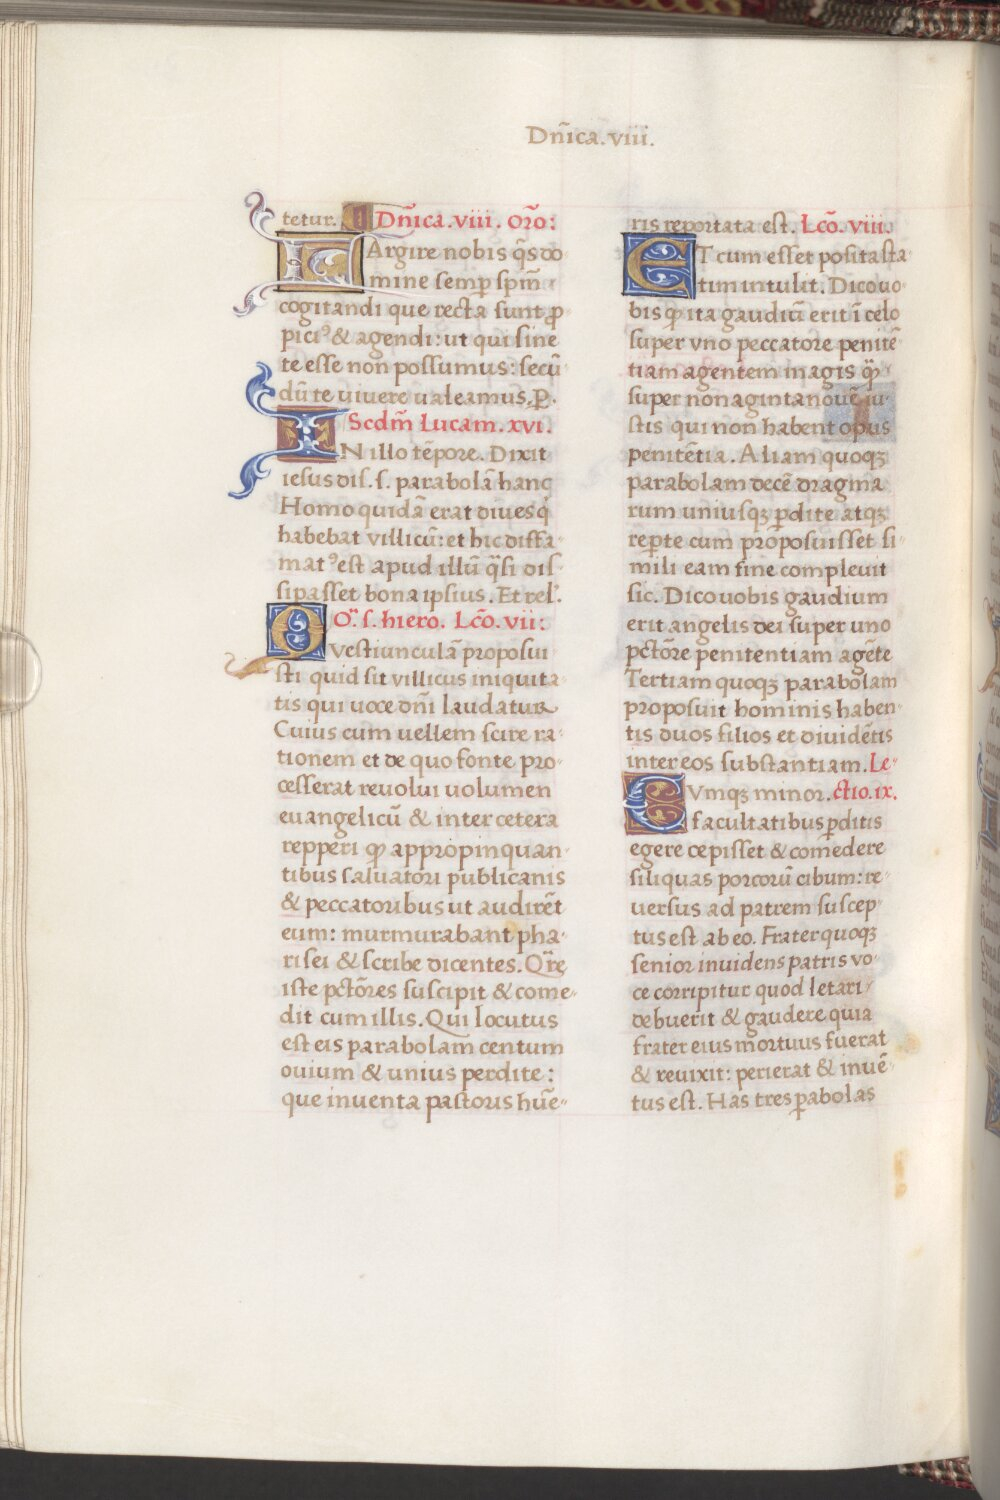 Dn̄ica.viii.
tetur. Dn̄ica.viii. Oro:
LArgire nobis q̄s do
mine semp̱ spm̄
cogitandi que recta sunt p̱
pici⁹ & agendi: ut qui sine
te esse non possumus: secū
dū te uiuere ualeamus. P̱.
Scdm̄ Lucam. xvi.
IN illo tēpore. Dixit
iesus dis. s. parabolā hanc
Homo quidā erat diues q̇
habebat villicū: et hic diffa-
mat⁹ est apud illū q̈si dis-
sipasset bona ipsius. Et rel'.
O.̈ s. hiero. Lc̄o. vii:
QVestiunculā proposui
sti quid sit villicus iniquita-
tis qui uoce dn̄i laudatur
Cuius cum vellem scire ra-
tionem et de quo fonte pro-
cesserat reuolui uolumen
euangelicū & inter cetera
repperi ꝙ appropinquan-
tibus saluatori publicanis
& peccatoribus ut audirēt
eum: murmurabant pha-
risei & scribe dicentes. Q̈re
iste pctōres suscipit & come-
dit cum illis. Qui locutus
est eis parabolam centum
ouium & unius perdite:
que inuenta pastoris hūe-
ris reportata est. Lc̄o. viii.
ET cum esset posita sta-
tim intulit. Dico uo-
bis ꝙ ita gaudiū erit ī celo
super vno peccatore penitē-
tiam agentem magis q̈̄
super nonaginta nouē iu-
stis qui non habent opus
penitētia. Aliam quoqꝫ
parabolam decē dragma
rum uniusqꝫ ꝑdite atqꝫ
reꝑte cum prōposuisset si-
mili eam fine compleuit
sic. Dico uobis gaudium
erit angelis dei super uno
pctōre penitentiam agēte
Tertiam quoqꝫ parabolam
proposuit hominis haben-
tis duos filios et diuidētis
inter eos substantiam. Le-
CVmqꝫ minor. ctio. ix.
facultatibus ꝑditis
egere cepisset & comedere
siliquas porcorū cibum: re-
uersus ad patrem suscep-
tus est ab eo. Frater quoqꝫ
senior inuidens patris vo-
ce corripitur quod letari
debuerit & gaudere quia
frater eius mortuus fuerat
& reuixit: perierat & inuē-
tus est. Has tres ꝑabolas